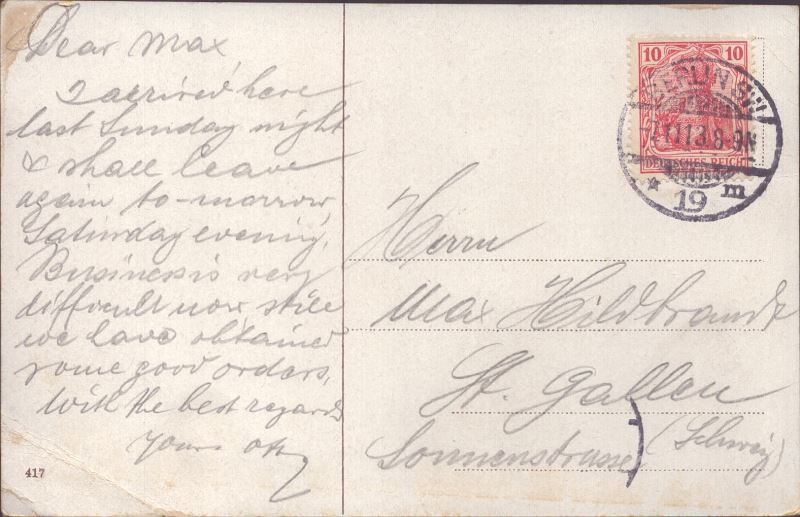 Dear Max,
I arrived here
last Sunday night
& shall leave
again to-morrow
Saturday evening.
Business is very
difficult now still
we have obtained
some good orders.
With the best regards
yours
417
10 10
DEUTSCHES REICH
BERLIN SW
11 13 8-9N
* 19 m
Herrn
Max Hildbrandt
St. Gallen
(Schweiz)
Sonnenstrasse